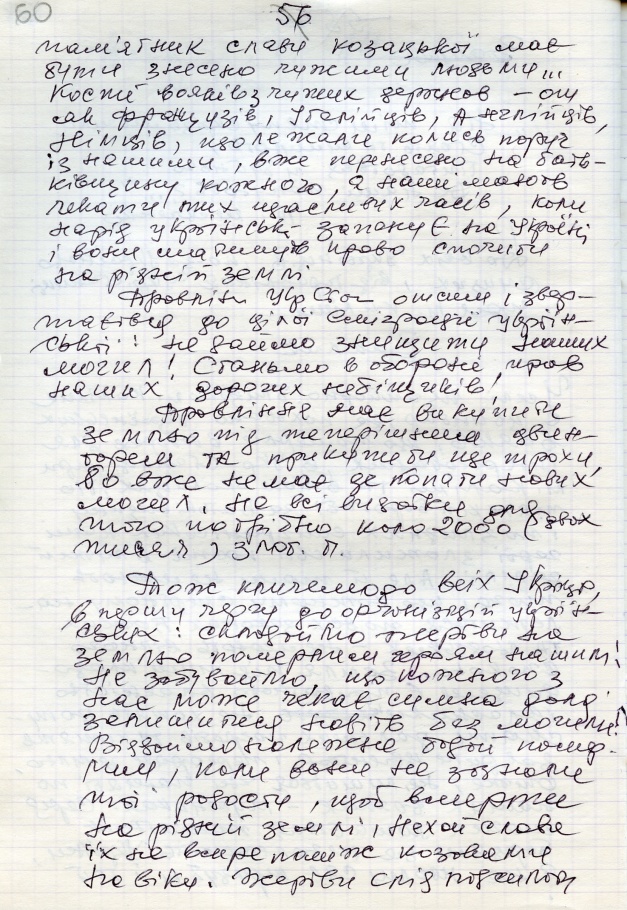 60
56
пам'ятник слави козацької має
бути знесено чужими людьми...
Кости вояків з чужих держав – от
як французів, Італійців, Англійців,
Німців, що лежали колись поруч
із нашими, вже перенесено на бать-
ківщину кожного, а наші мають
чекати тих щасливих часів, коли
нарід український запанує на Україні
і вони матимуть право спочити
на рідній землі
Управління Укр Стан отсим і звер-
тається до цілої еміграції україн-
ської: не даймо знищити наших
могил! Станьмо в обороні прав
наших дорогих небіщиків!
Управління має викупити
землю під теперішнім цвин-
тарем та прикупити ще трохи,
бо вже немає де копати нових
могил. На всі видатки для
того потрібно коло 2000 (двох
тисяч) злот. п.
Тож кличемо до всіх Українців,
в першу чергу до організацій україн-
ських: складаймо жертви на
землю померлим героям нашим!
Не забуваймо, що кожного з
нас може чекає сумна доля
залишитися навіть без могили!
Віддаймо належне тіням помер-
лим, коли вони не зазнали
тої радости, щоб вмерти
на рідній землі, нехай слава
їх не вмре поміж козаками
на віки. Жертви слід посилати